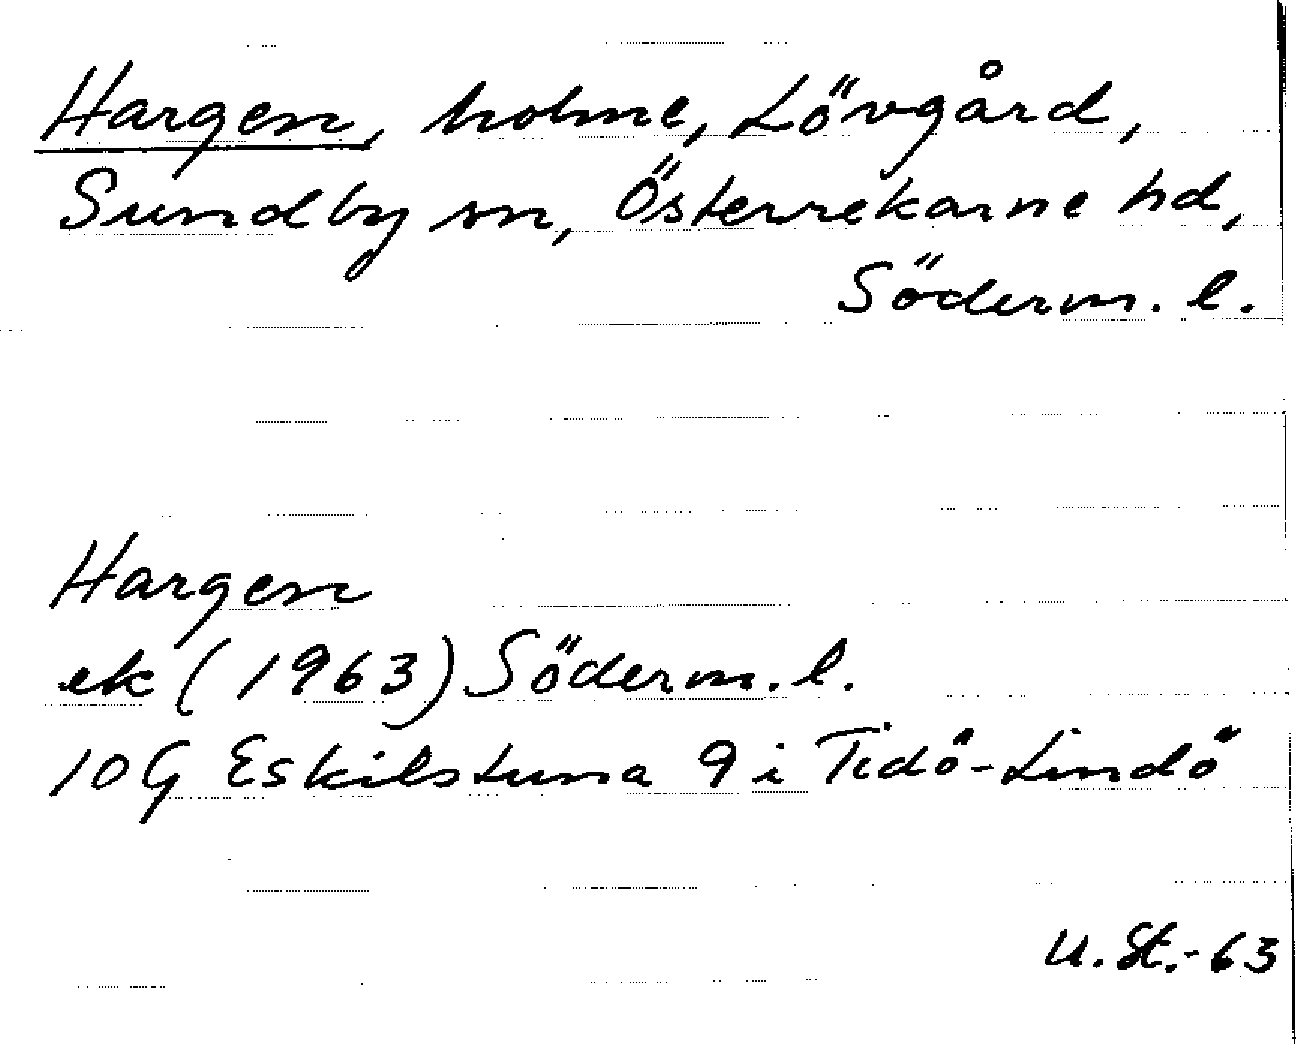 Hargen, holme, Lövgård,
Sundby sn, Österrekarne hd,
Söderm. l.
Hargen
ek (1963) Söderm. l.
10G Eskilstuna 9 i Tidö-Lindö
U. St.-63